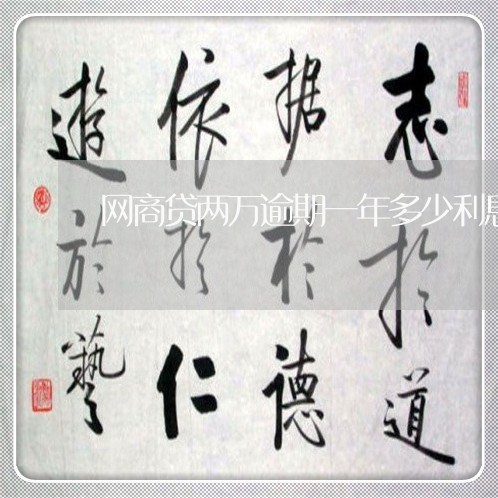 志扵道
据於德
依扵仁
遊於藝
网商贷两万逾期一年多少利息